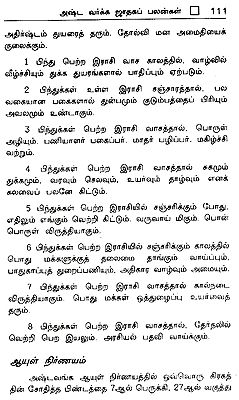 அஷ்ட வர்க்க ஜாதகப் பலன்கள் 111
அதிர்ஷ்டம் துயரைத் தரும். தோல்வி மன அமைதியைக்
குலைக்கும்.
1 பிந்து பெற்ற இராசி வாச காலத்தில், வாழ்வில்
வீழ்ச்சியும் துக்க துயரங்களால் பாதிப்பும் ஏற்படும்.
2 பிந்துக்கள் உள்ள இராசி சஞ்சாரத்தால், பல
வகையான பகைகளால் துன்பமும் குடும்பத்தைப் பிரியும்
அவலமும் உண்டாகும்.
3 பிந்துக்கள் பெற்ற இராசி வாசத்தால், பொருள்
அழியும். பணியாளர் பகைப்பர். மாதர் பழிப்பர். மகிழ்ச்சி
வற்றும்.
4 பிந்துக்கள் பெற்ற இராசி வாசத்தால் சுகமும்
துக்கமும், வரவும் செலவும், உயர்வும் தாழ்வும் எனக்
கலவைப் பலனே கிட்டும்.
5 பிந்துக்கள் பெற்ற இராசியில் சஞ்சரிக்கும் போது,
எதிலும் எங்கும் வெற்றி கிட்டும். வருவாய் மிகும். பொன்
பொருள் விருத்தியாகும்.
6 பிந்துக்கள் பெற்ற இராசியில் சஞ்சரிக்கும் காலத்தில்
பொது மக்களுக்குத் தலைமை தாங்கும் வாய்ப்பும்,
பாதுகாப்புத் துறைப்பணியும், அதிகார வாழ்வும் அமையும்.
7 பிந்துக்கள் பெற்ற இராசி வாசத்தால் கால்நடை
விருத்தியாகும். பொது மக்கள் ஒத்துழைப்பு உயர்வைத்
தரும்.
8 பிந்துக்கள் பெற்ற இராசி வாசத்தால், தேர்தலில்
வெற்றி பெற இயலும். அரசியல் பதவி வாய்க்கும்.
ஆயுள் நிர்ணயம்
அஷ்டவர்க்க ஆயுள் நிர்ணயத்தில் ஒவ்வொரு கிரகத்
தின் சோதித்த பிண்டத்தை 7ஆல் பெருக்கி, 27ஆல் வகுத்து